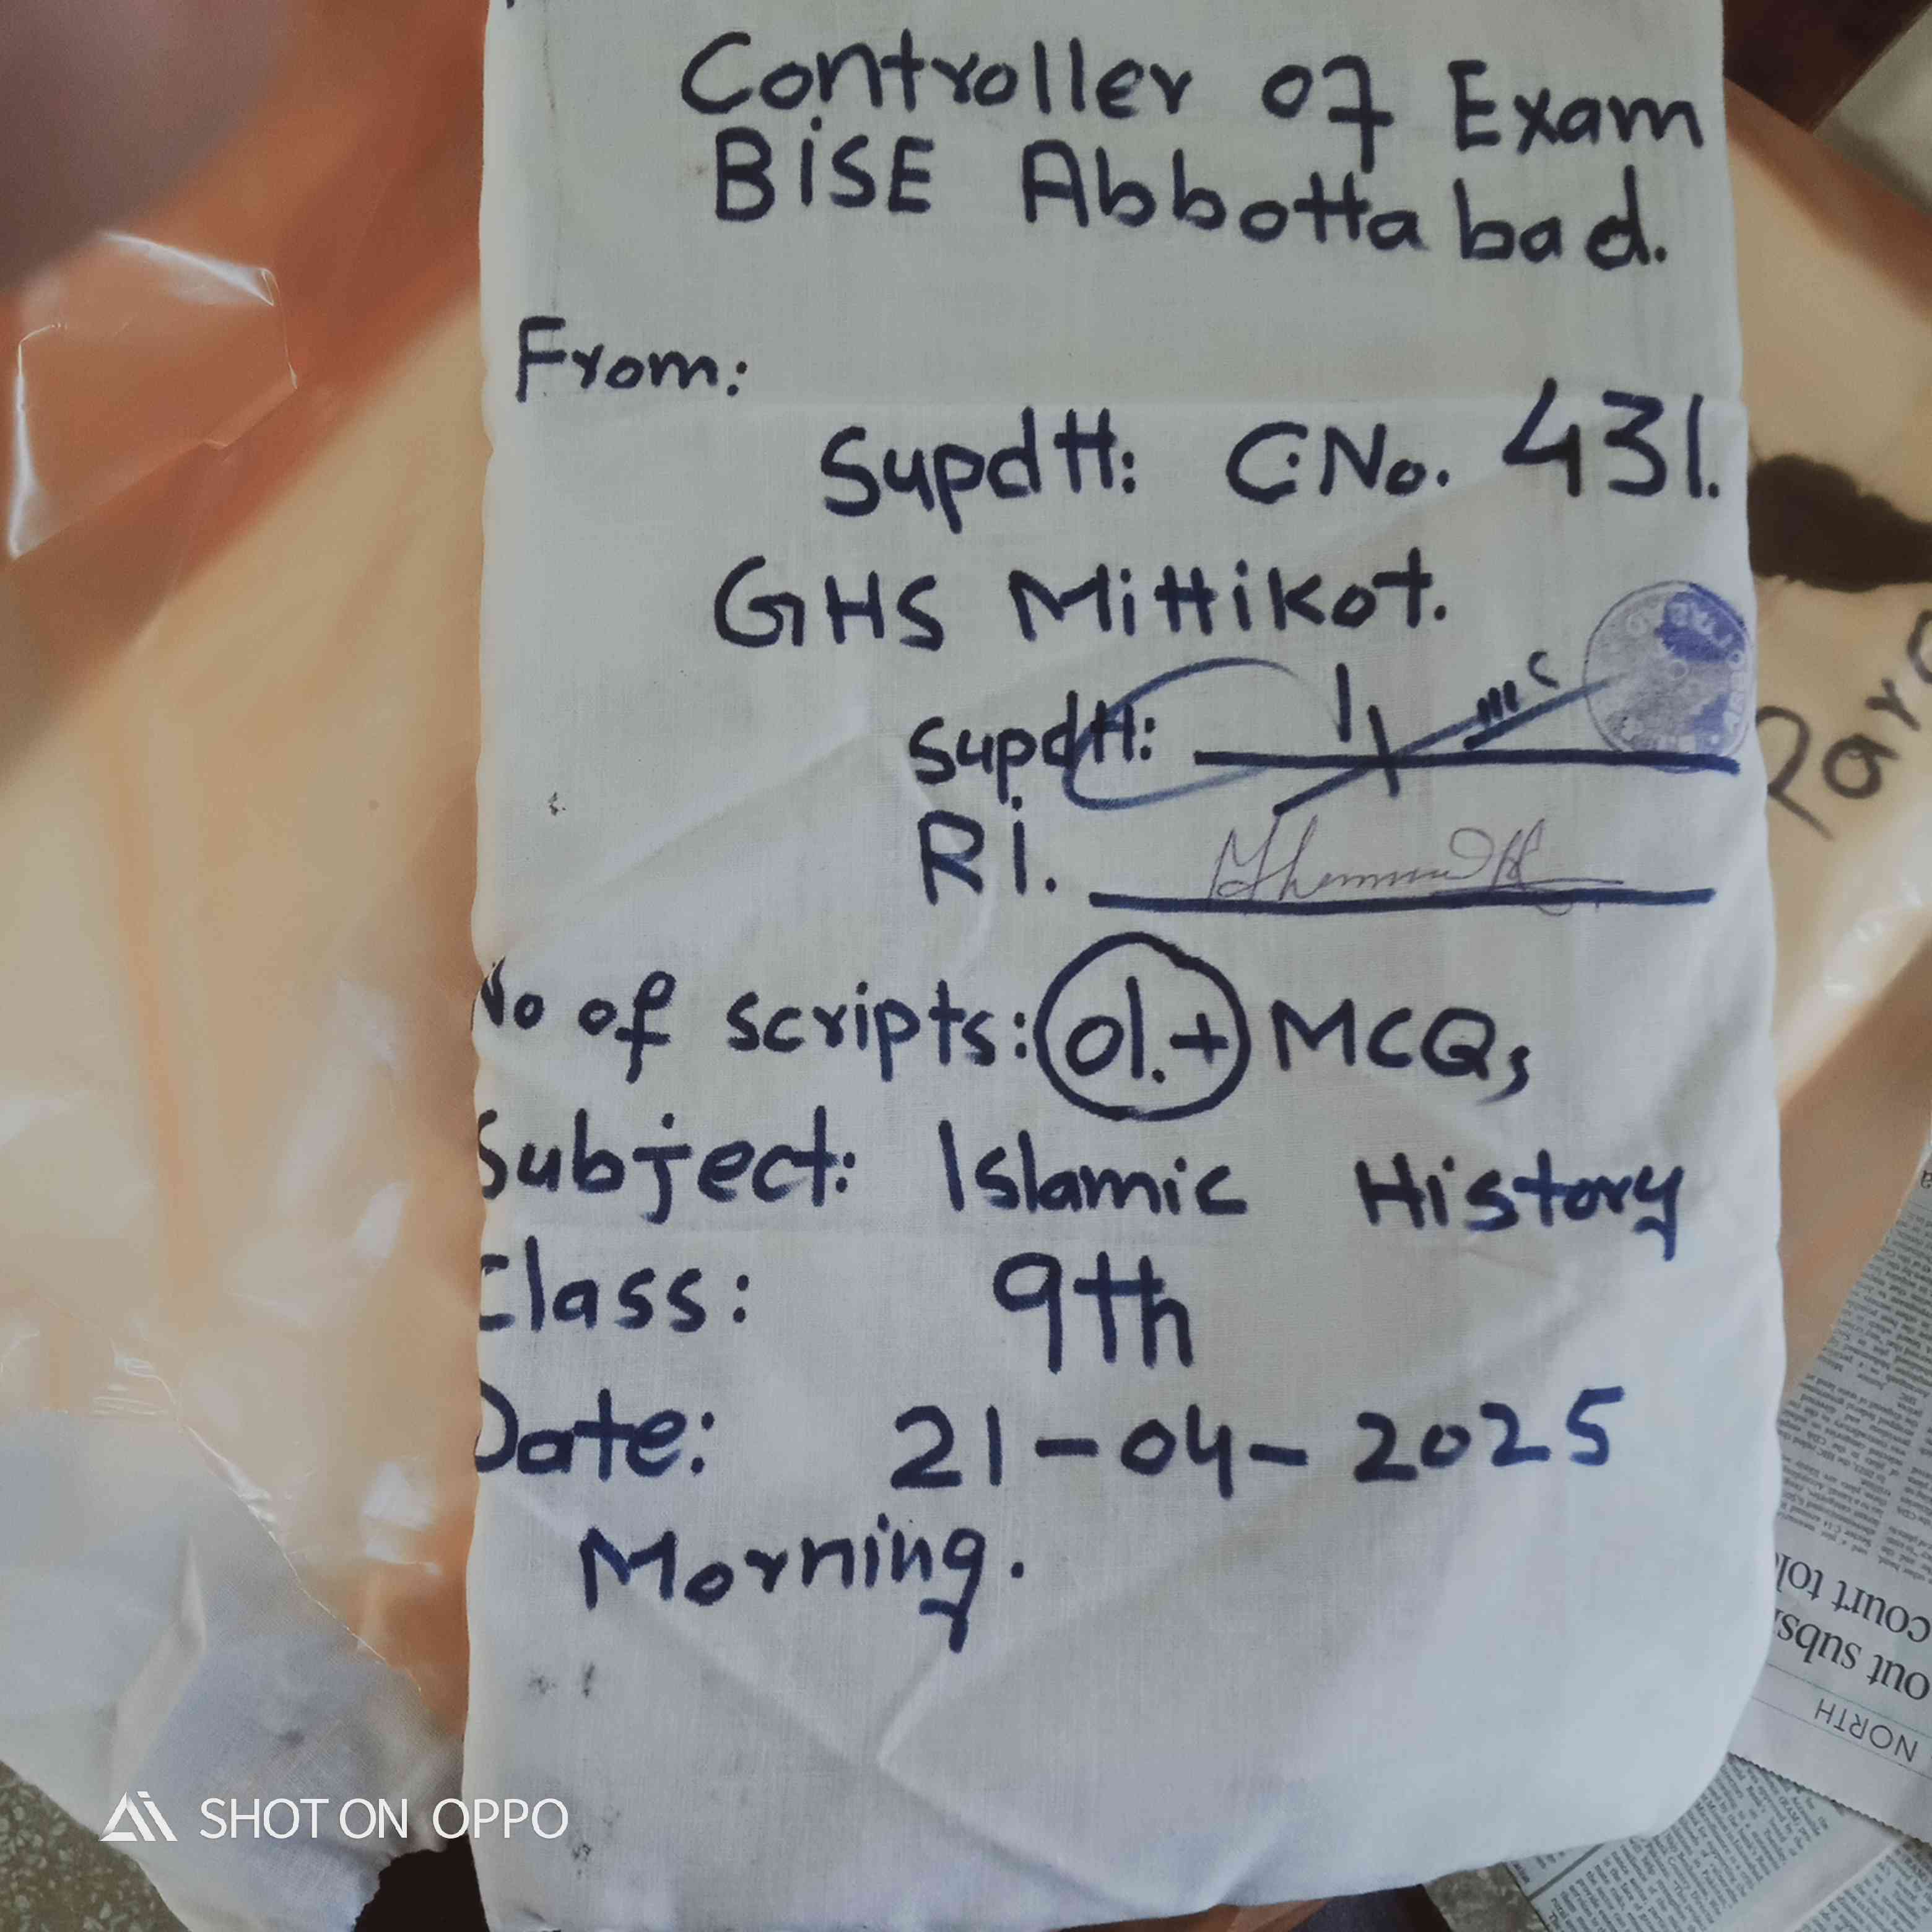 Controller of Exam
BISE Abbottabad.
From:
Supdtt: C.No. 431.
GHS Mittikot.
Supdtt:
RI.
No of scripts: 01.+ MCQs
Subject: Islamic History
Class: 9th
Date: 21-04-2025
Morning.
SHOT ON OPPO
court told
out subs
NORTH